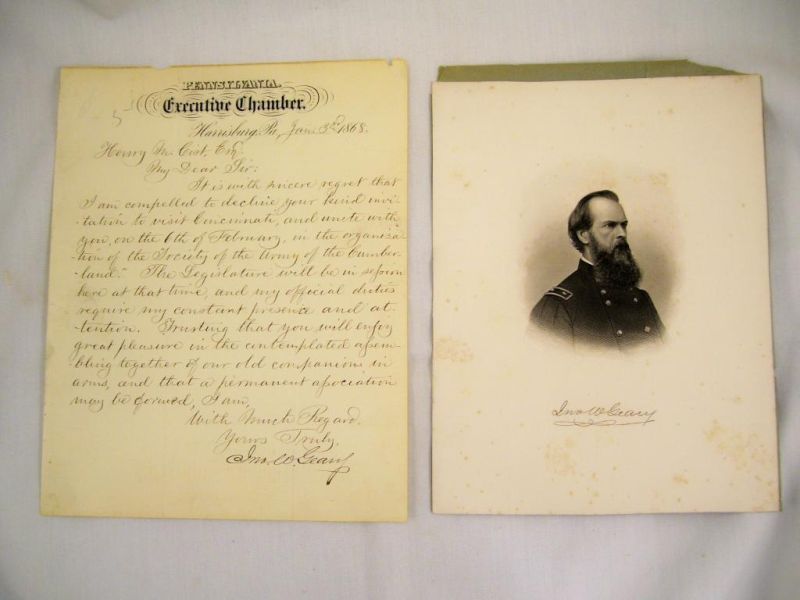 PENNSYLVANIA.
Executive Chamber.
Harrisburg, Pa, Jan. 3rd 1868.
Henry M. Cist, Esq.
My Dear Sir:
It is with sincere regret that
I am compelled to decline your kind invi-
-tation to visit Cincinnati, and unite with
you, on the 6th of February, in the organiza-
-tion of the "Society of the Army of the Cumber-
-land." The Legislature will be in session
here at that time, and my official duties
require my constant presence and at-
-tention. Trusting that you will enjoy
great pleasure in the contemplated assem-
-bling together of our old companions in
arms, and that a permanent association
may be formed, I am,
With Much Regard,
Yours Truly,
Jno. W. Geary
Jno W Geary